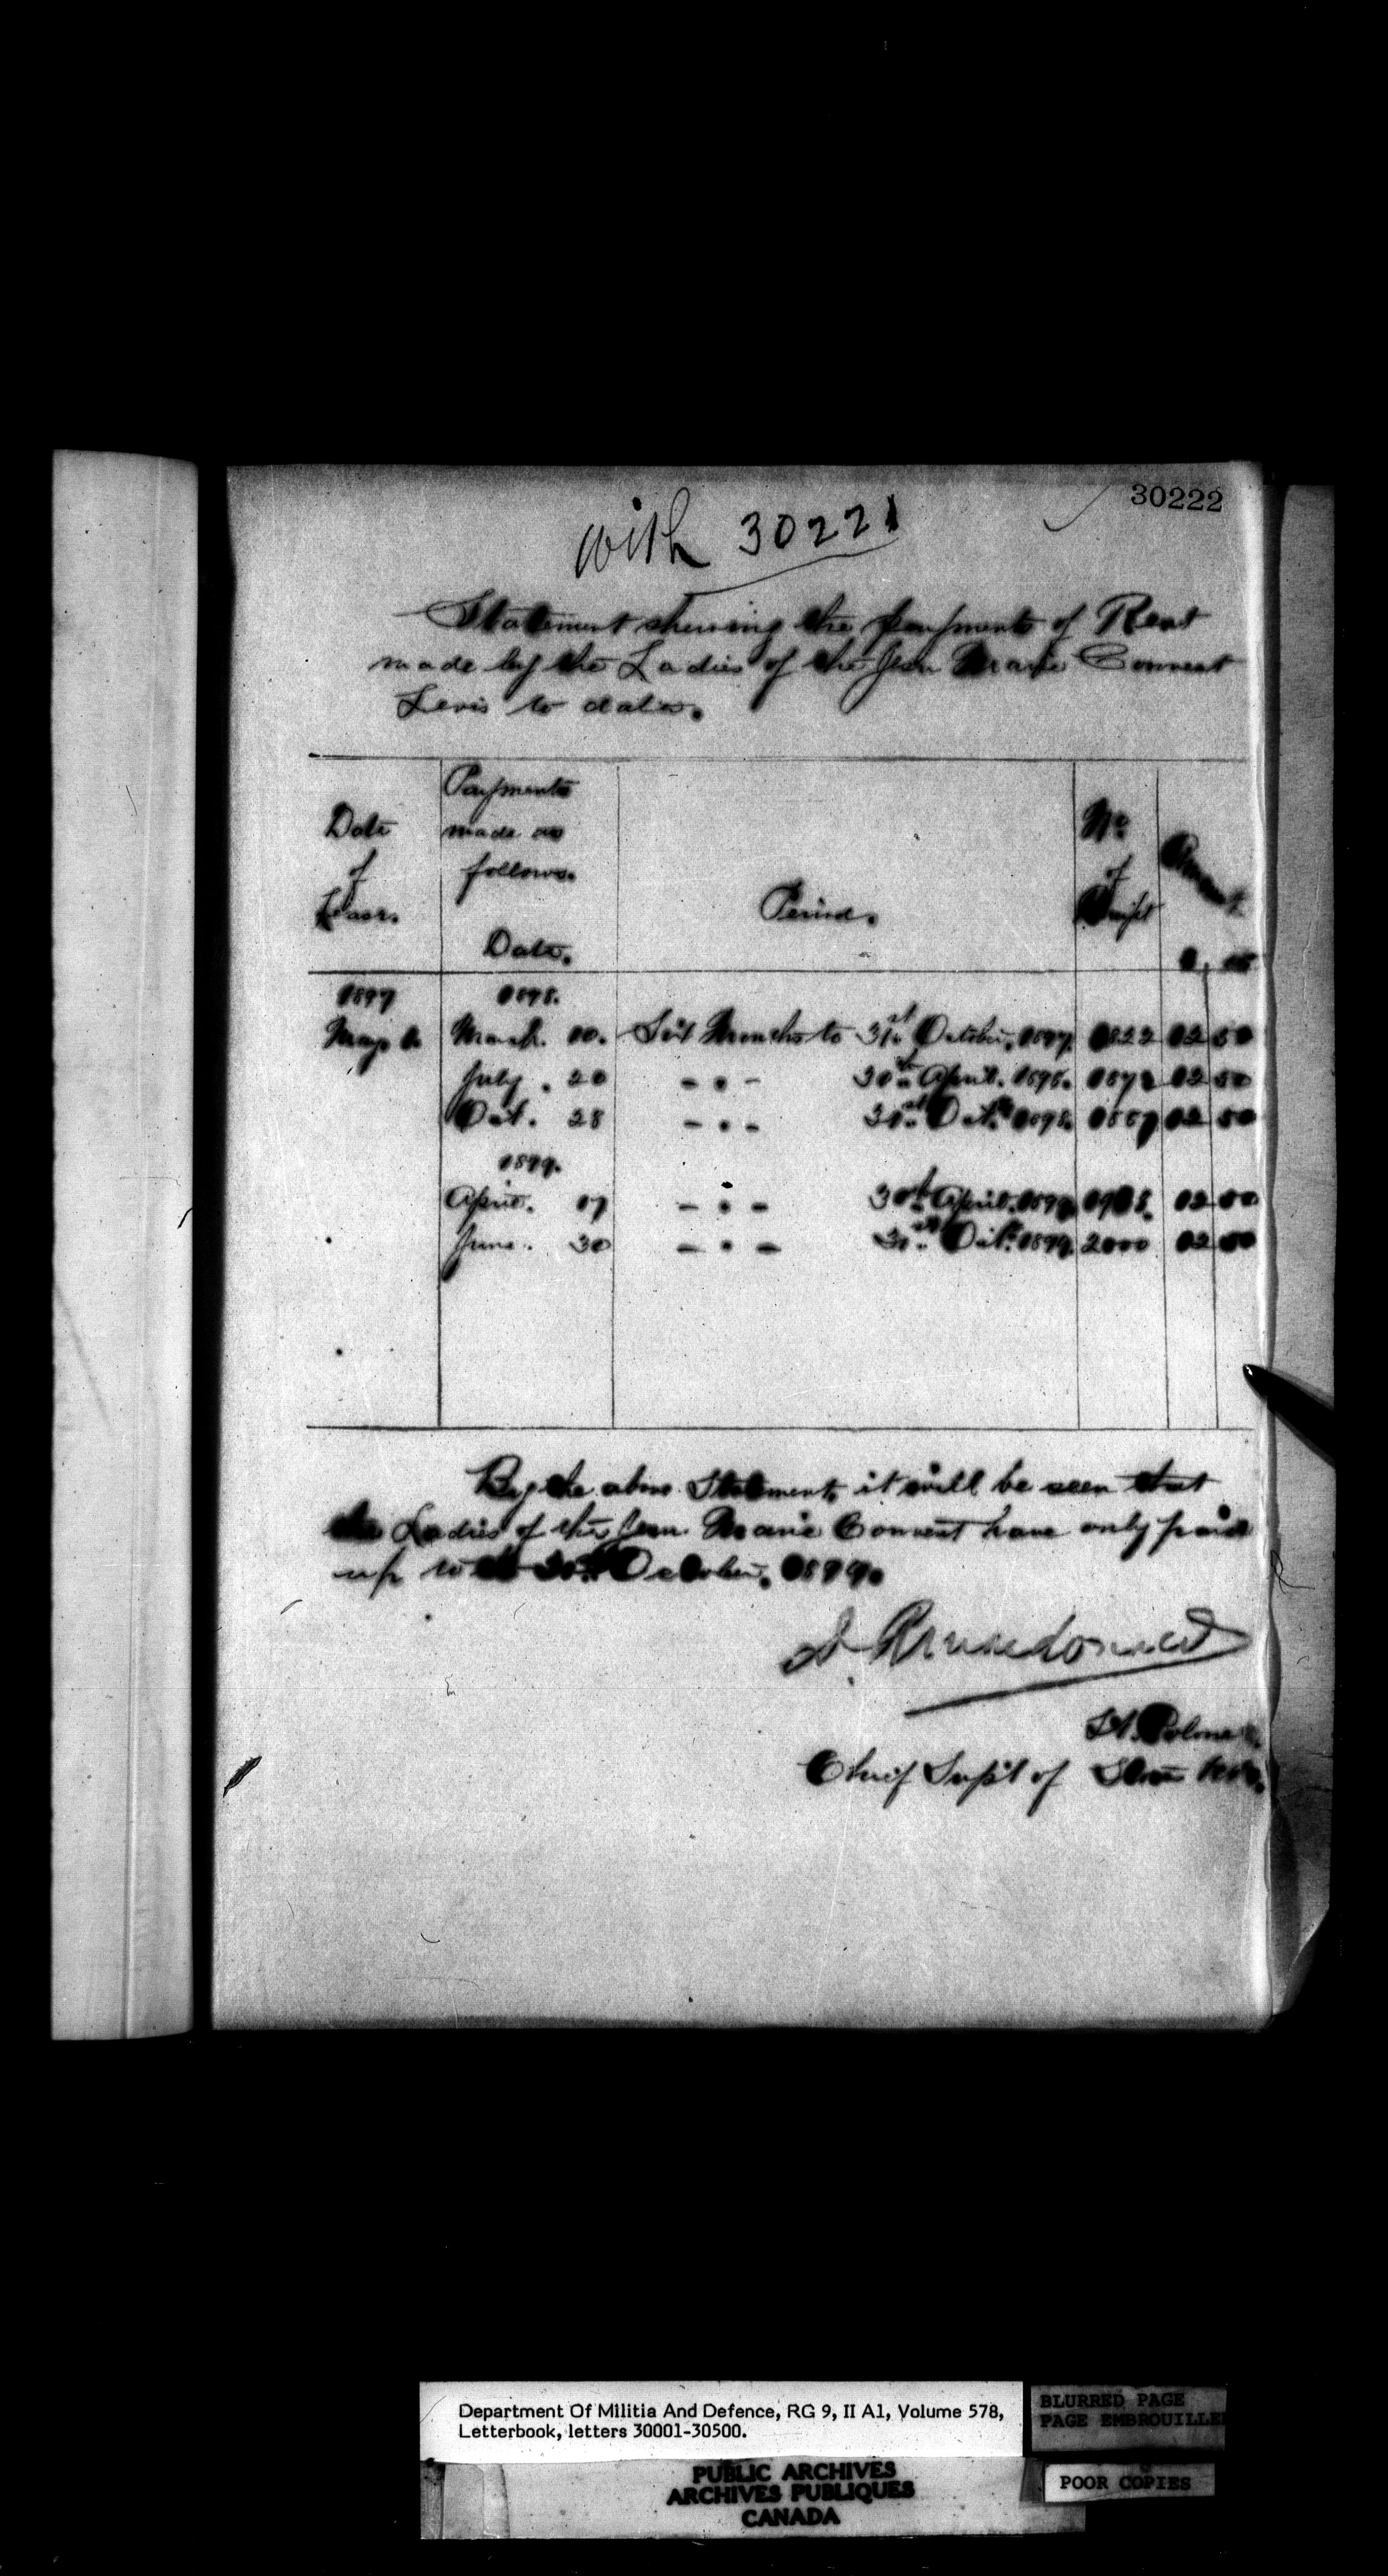 30222
with 30221
Statement shewing the payments of Rent
made by the Ladies of the Jesu Marie Convent
Levis to date.
Date of Lease. Payments made as follows. Date. Period. No of Amount
1897 1898.
May March. 10. Six Months to 31st October. 1897. 1822 12 50
July. 20 - " - 30th April. 1898. 12 50
Oct. 28 - " - 31st Oct. 1898. 12 50
1899.
April. 17 - " - 30th April. 1899. 12 50
June. 30 - " - 31st Oct. 1899. 2000 12 50
By the above Statement, it will be seen that
the Ladies of the Jesu Marie Convent have only paid
up to the October. 1899.
Lt. Colonel.
Chief Supt of
Department Of Militia And Defence, RG 9, II A1, Volume 578,
Letterbook, letters 30001-30500.
BLURRED PAGE
PAGE EMBROUILLE
PUBLIC ARCHIVES
ARCHIVES PUBLIQUES
CANADA
POOR COPIES